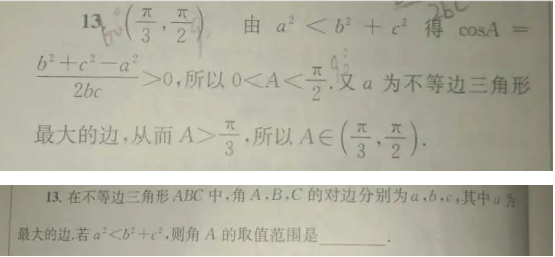 13. (π/3, π/2) 由 a² < b² + c² 得 cosA =
(b²+c²-a²)/2bc >0,所以 0<A<π/2.又 a 为不等边三角形
最大的边,从而 A>π/3,所以 A∈(π/3, π/2).
13. 在不等边三角形 ABC 中,角 A、B、C 的对边分别为 a,b,c,其中 a 为
最大的边.若 a²<b²+c²,则角 A 的取值范围是________.